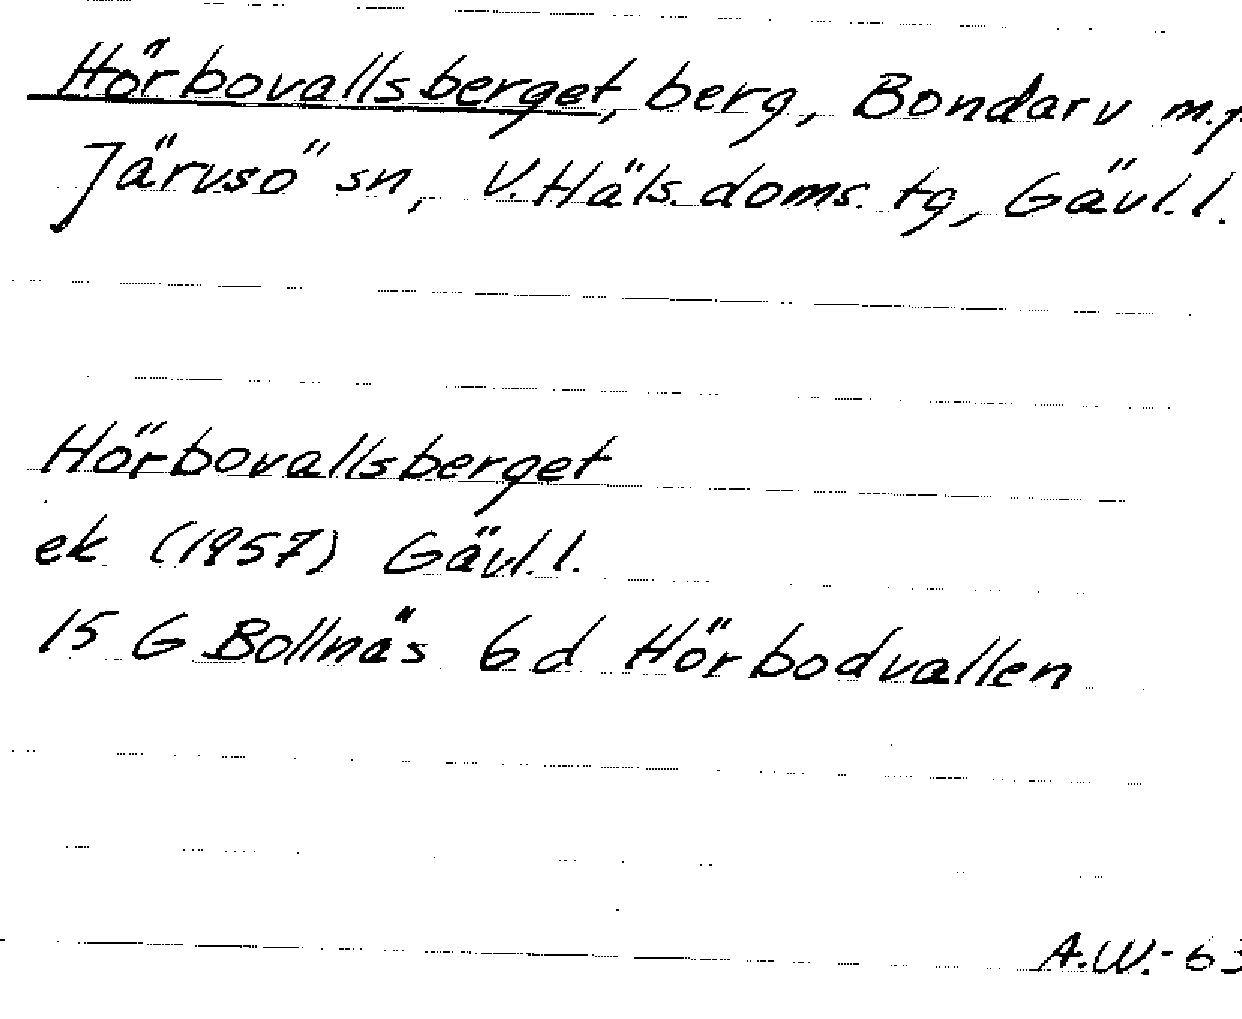 Hörbovallsberget, berg, Bondarv m.fl.
Järvsö sn, V. Häls. doms. tg, Gävl. l.
Hörbovallsberget
ek (1957) Gävl. l.
15 G Bollnäs 6d Hörbodvallen
A.W.-63